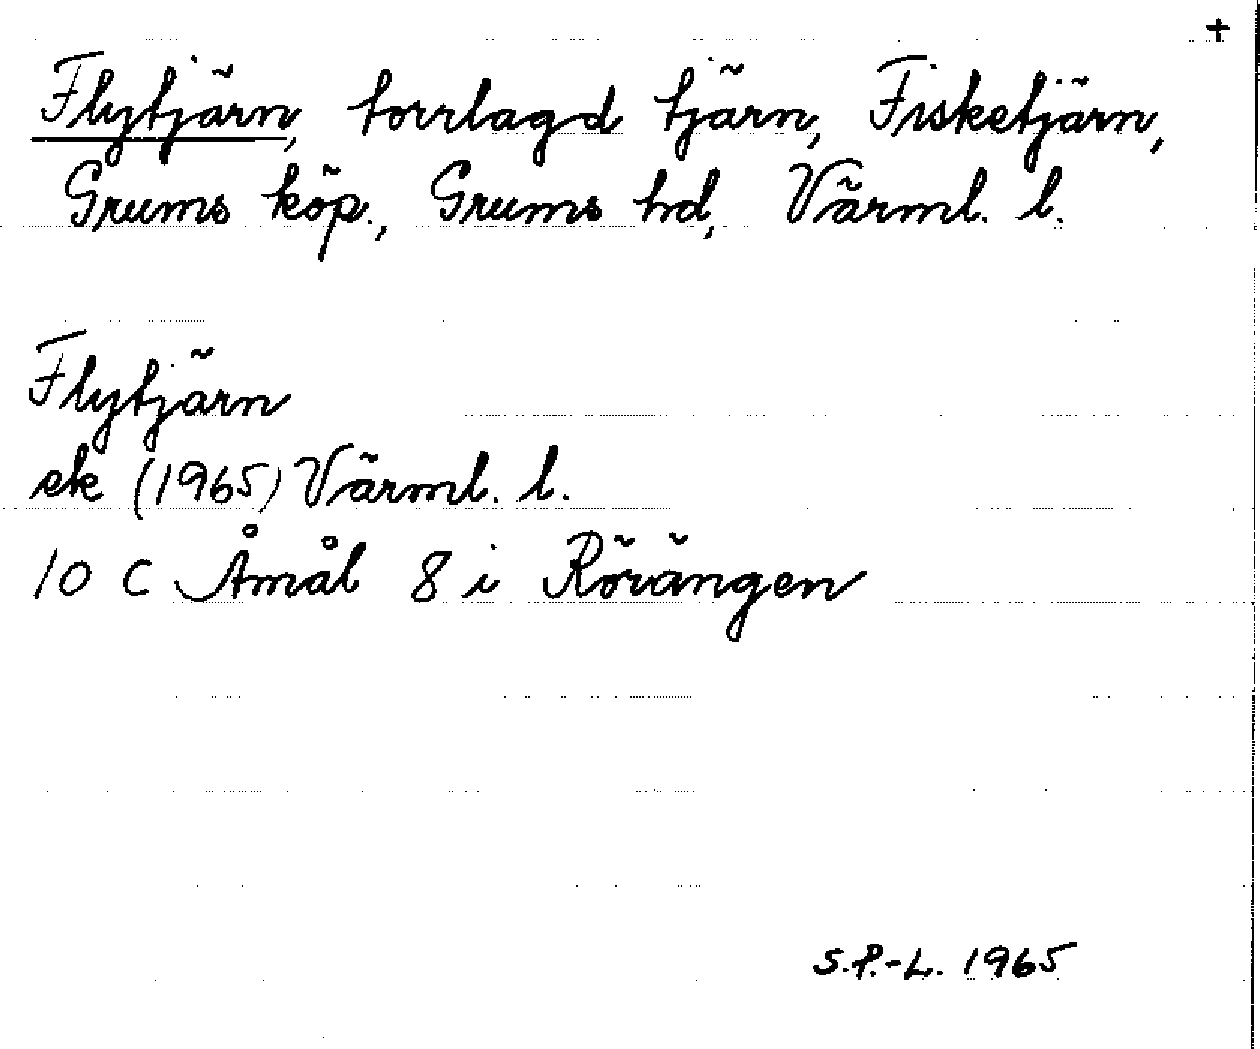 +
Flytjärn, torrlagd tjärn, Fisketjärn,
Grums köp., Grums hd, Värml. l.
Flytjärn
ek (1965) Värml. l.
10 C Åmål 8 i Rörängen
S.P.-L. 1965